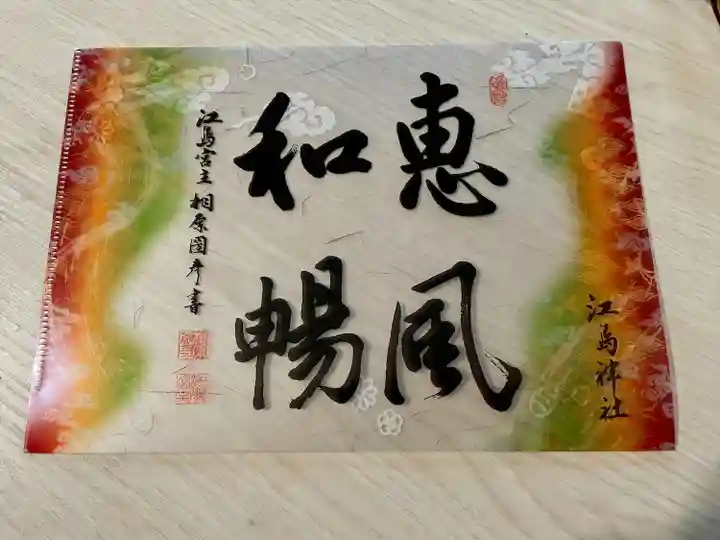 惠風
和暢
江島宮主 相原圀彦書
江島神社